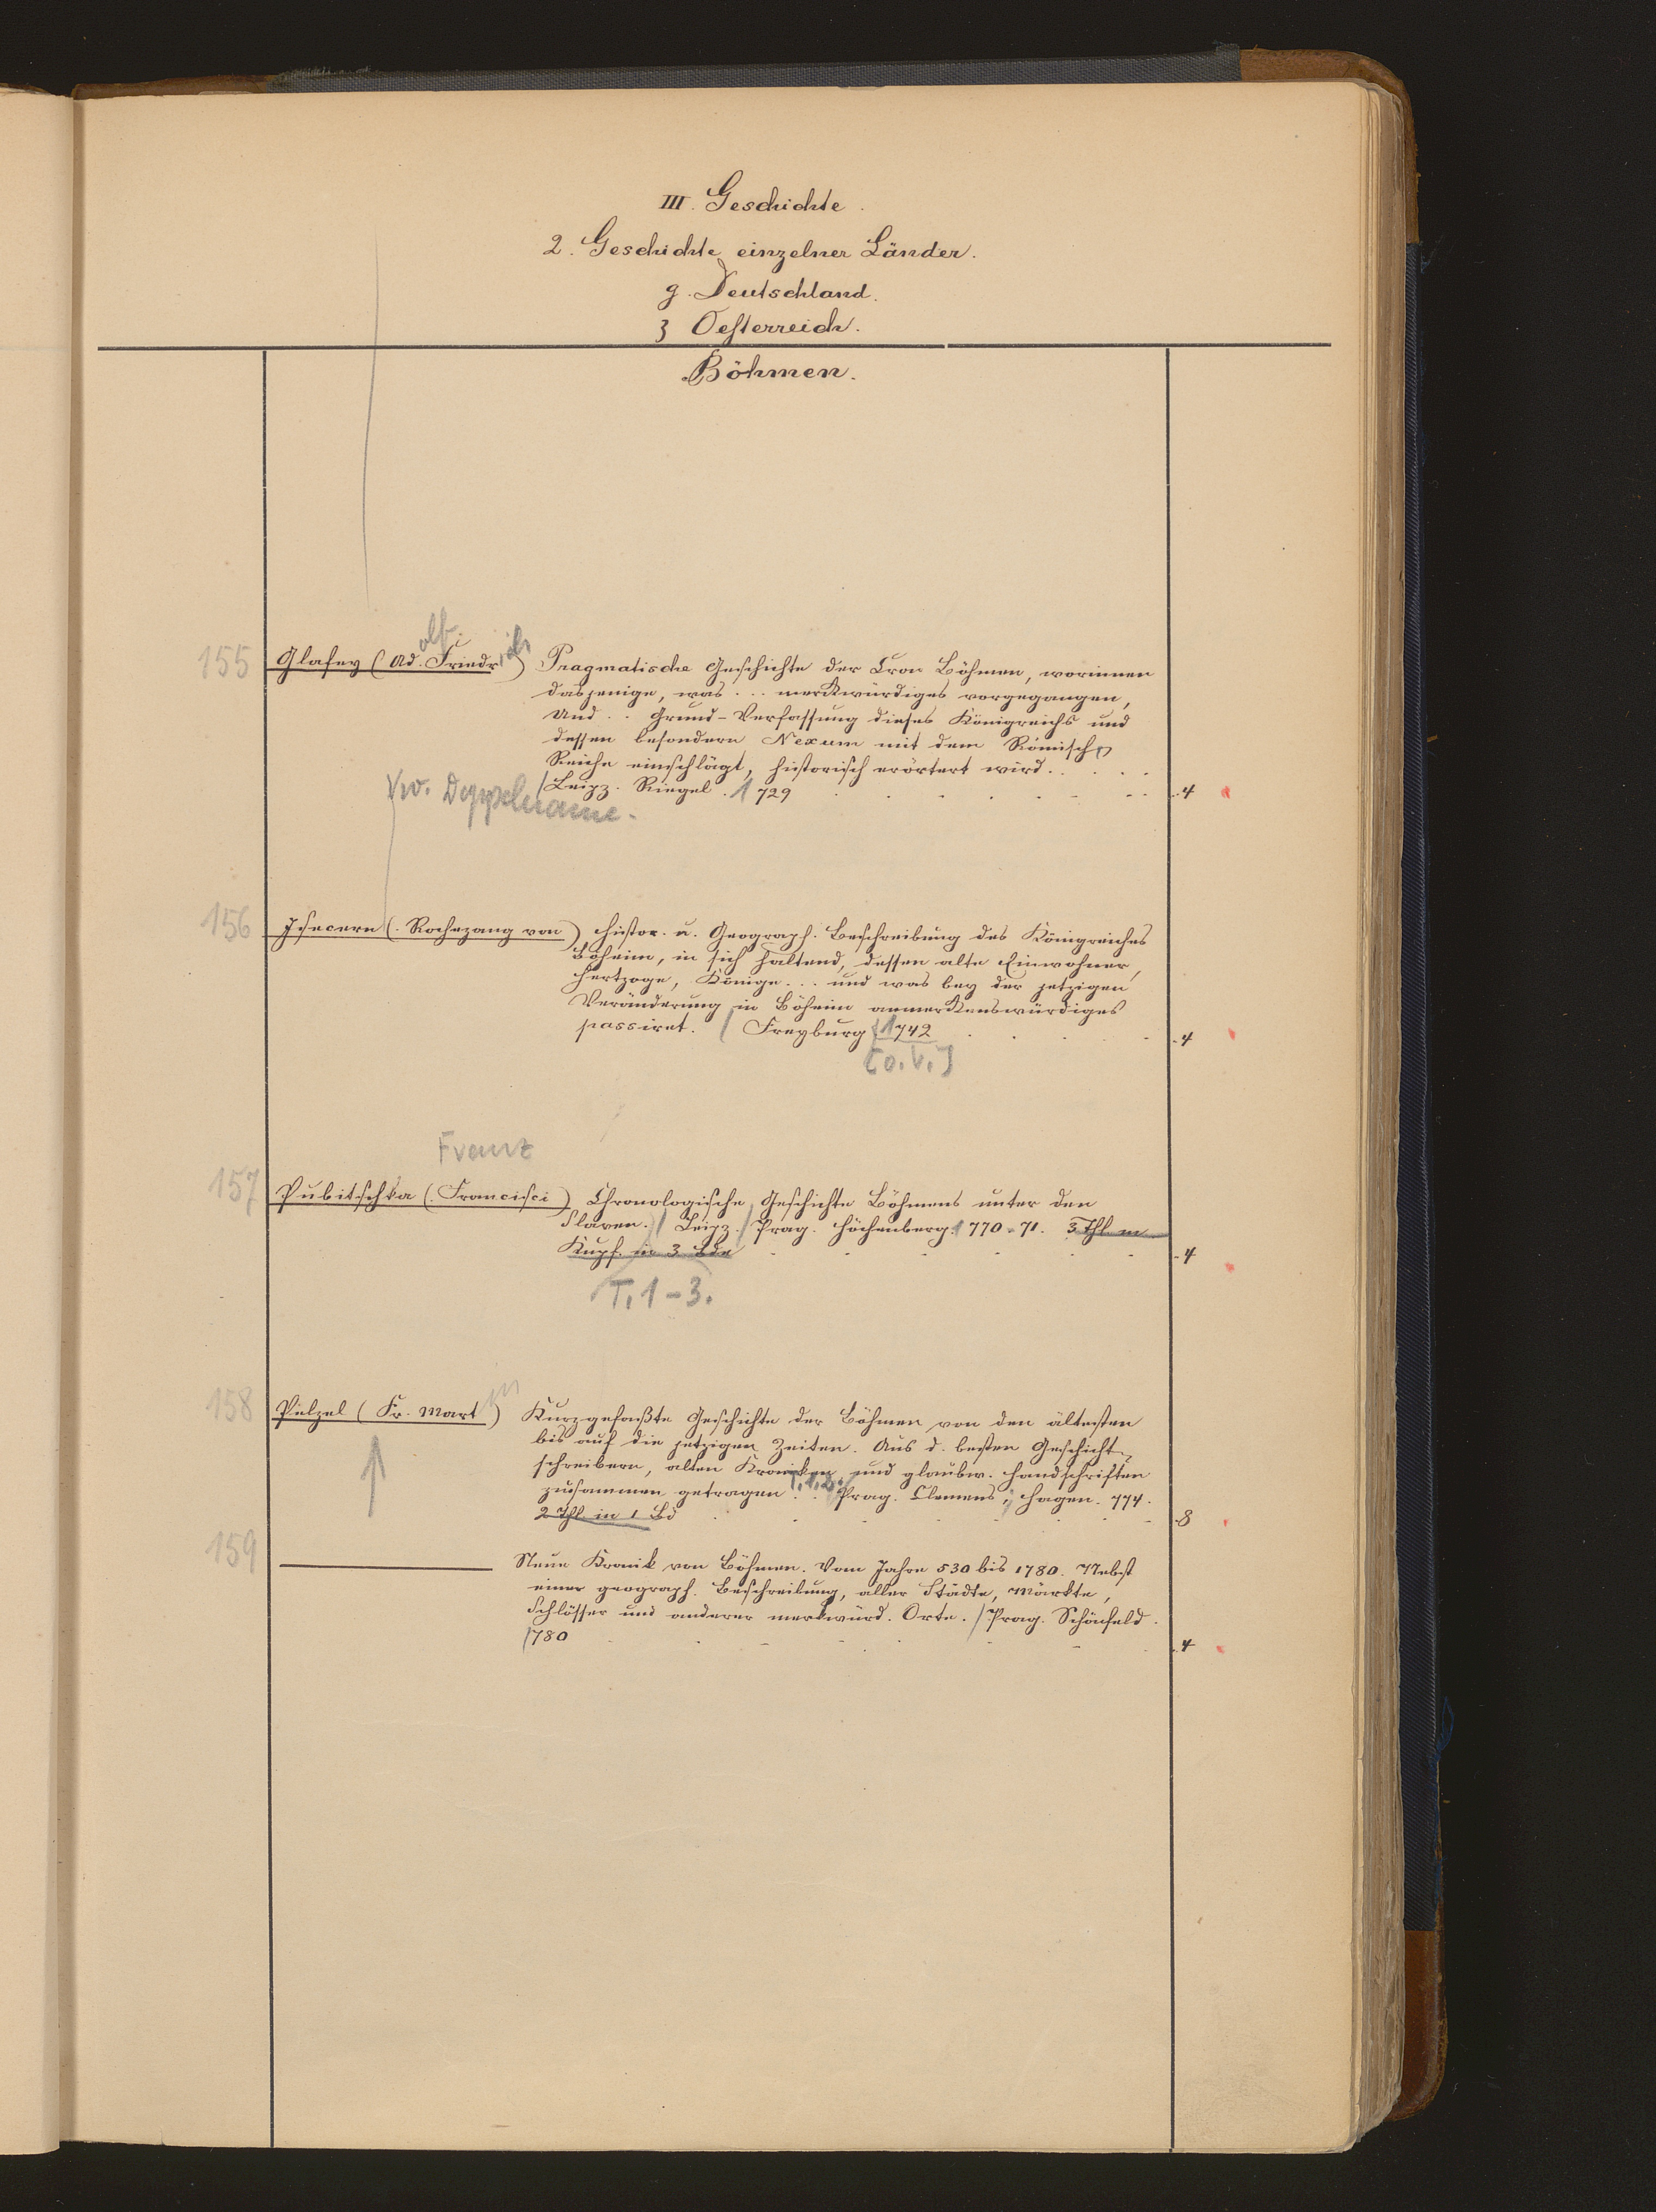 III. Geschichte.
2. Geschichte einzelner Länder.
g. Deutschland.
3 Oesterreich.
Böhmen.
olf ich
155 Glafey (Ad. Friedr.) Pragmatische Geschichte der Cron Böhmen, worinnen
dasjenige, was ... merckwürdiges vorgegangen,
und .. Grund-Verfassung dieses Königreichs und
dessen besondern Nexum mit dem Römisch
Reiche einschlägt, historisch erörtert wird. . . .
/Leipz. Riegel. 1729 . . . . . . 4
156 (. Rochezang von) Histor. u. Geograph. Beschreibung des Königreiches
Böheim, in sich haltend, dessen alte Einwohner,
Hertzoge, Könige ... und was bey der jetzigen
Veränderung in Böheim anmerkenswürdiges
passiret. / Freyburg 1742 . . . . 4
[o. V.]
Franz
157 Pubitschka (. Francisci) Chronologische Geschichte Böhmens unter den
Slaven. / Leipz. / Prag. Höchenberg. 1770-71. 3 Thl. m
Kupf. in 3 Bde . . . . . . 4
T. 1-3.
158 Pelzel (Fr. Mart) Kurzgefaßte Geschichte der Böhmen von den ältesten
bis auf die jetzigen Zeiten. Aus d. besten Geschicht-
schreibern, alten Kroniken und glaubw. Handschriften
T. 1.2.
zusammen getragen .. /Prag. Clemens, Hagen. 774.
2 Thl. in 1 Bd . . . . . . 8
159 ——— Neue Kronik von Böhmen. Vom Jahre 530 bis 1780. Nebst
einer geograph. Beschreibung, aller Städte, Märkte,
Schlösser und anderer merkwürd. Orte. /Prag. Schönfeld.
1780 . . . . . . 4